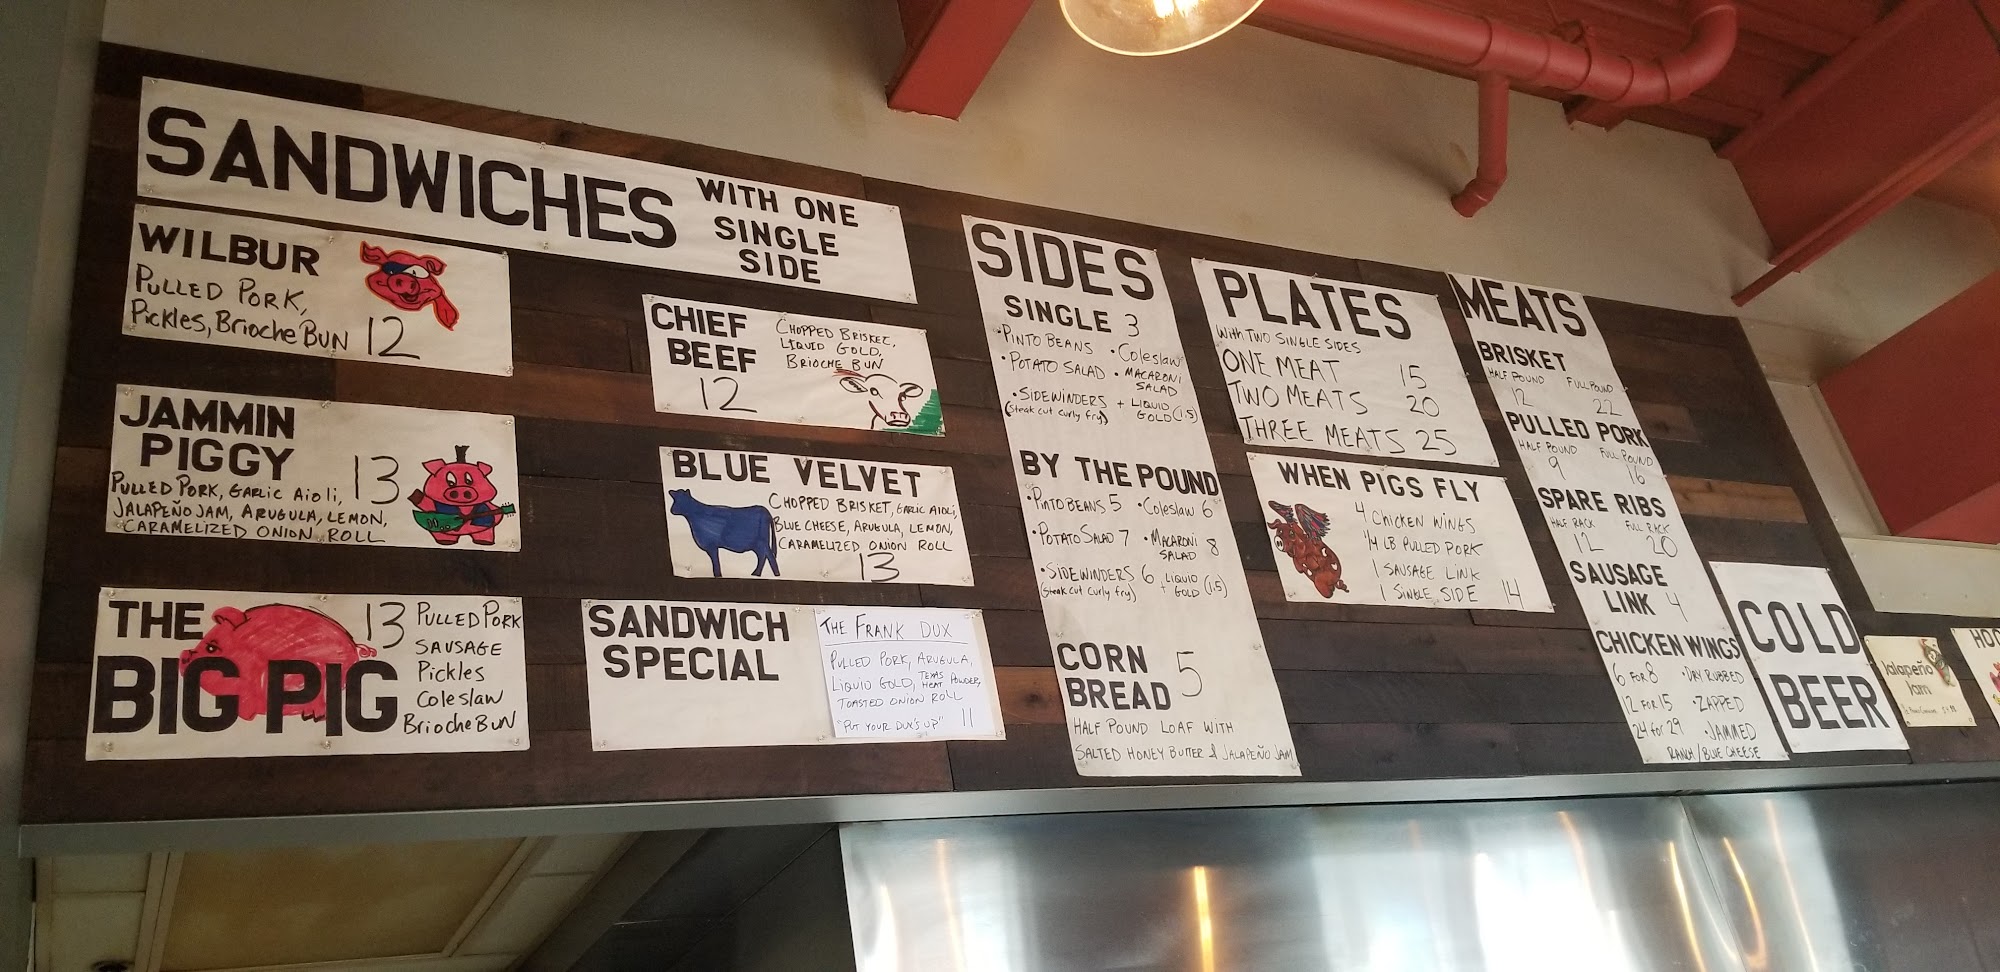 SANDWICHES
WITH ONE
SINGLE
SIDE
WILBUR
PULLED PORK,
Pickles, Brioche BUN 12
CHIEF
BEEF
12
CHOPPED BRISKET,
LIQUID GOLD,
BRIOCHE BUN
JAMMIN
PIGGY 13
PULLED PORK, GARLIC AIOLI,
JALAPEÑO JAM, ARUGULA, LEMON,
CARAMELIZED ONION ROLL
BLUE VELVET
CHOPPED BRISKET, GARLIC AIOLI,
BLUE CHEESE, ARUGULA, LEMON,
CARAMELIZED ONION ROLL
13
THE
BIG PIG
13 PULLED PORK
SAUSAGE
Pickles
Coleslaw
Brioche BUN
SANDWICH
SPECIAL
THE FRANK DUX
PULLED PORK, ARUGULA,
LIQUID GOLD, TEXAS HEAT POWDER,
TOASTED ONION ROLL
"PUT YOUR DUX'S UP" 11
SIDES
SINGLE 3
• PINTO BEANS • Coleslaw
• POTATO SALAD • MACARONI
SALAD
• SIDEWINDERS + LIQUID
(steak cut curly fry) GOLD (1.5)
BY THE POUND
• PINTO BEANS 5 • Coleslaw 6
• POTATO SALAD 7 • MACARONI
SALAD 8
• SIDEWINDERS 6 + LIQUID
(steak cut curly fry) GOLD (1.5)
CORN
BREAD 5
HALF POUND LOAF WITH
SALTED HONEY BUTTER & JALAPEÑO JAM
PLATES
WITH TWO SINGLE SIDES
ONE MEAT 15
TWO MEATS 20
THREE MEATS 25
WHEN PIGS FLY
4 CHICKEN WINGS
1/4 LB PULLED PORK
1 SAUSAGE LINK
1 SINGLE SIDE 14
MEATS
BRISKET
HALF POUND FULL POUND
12 22
PULLED PORK
HALF POUND FULL POUND
9 16
SPARE RIBS
HALF RACK FULL RACK
12 20
SAUSAGE
LINK 4
CHICKEN WINGS
6 FOR 8 • DRY RUBBED
12 FOR 15 • ZAPPED
24 for 29 • JAMMED
RANCH / BLUE CHEESE
COLD
BEER
Jalapeño
Jam